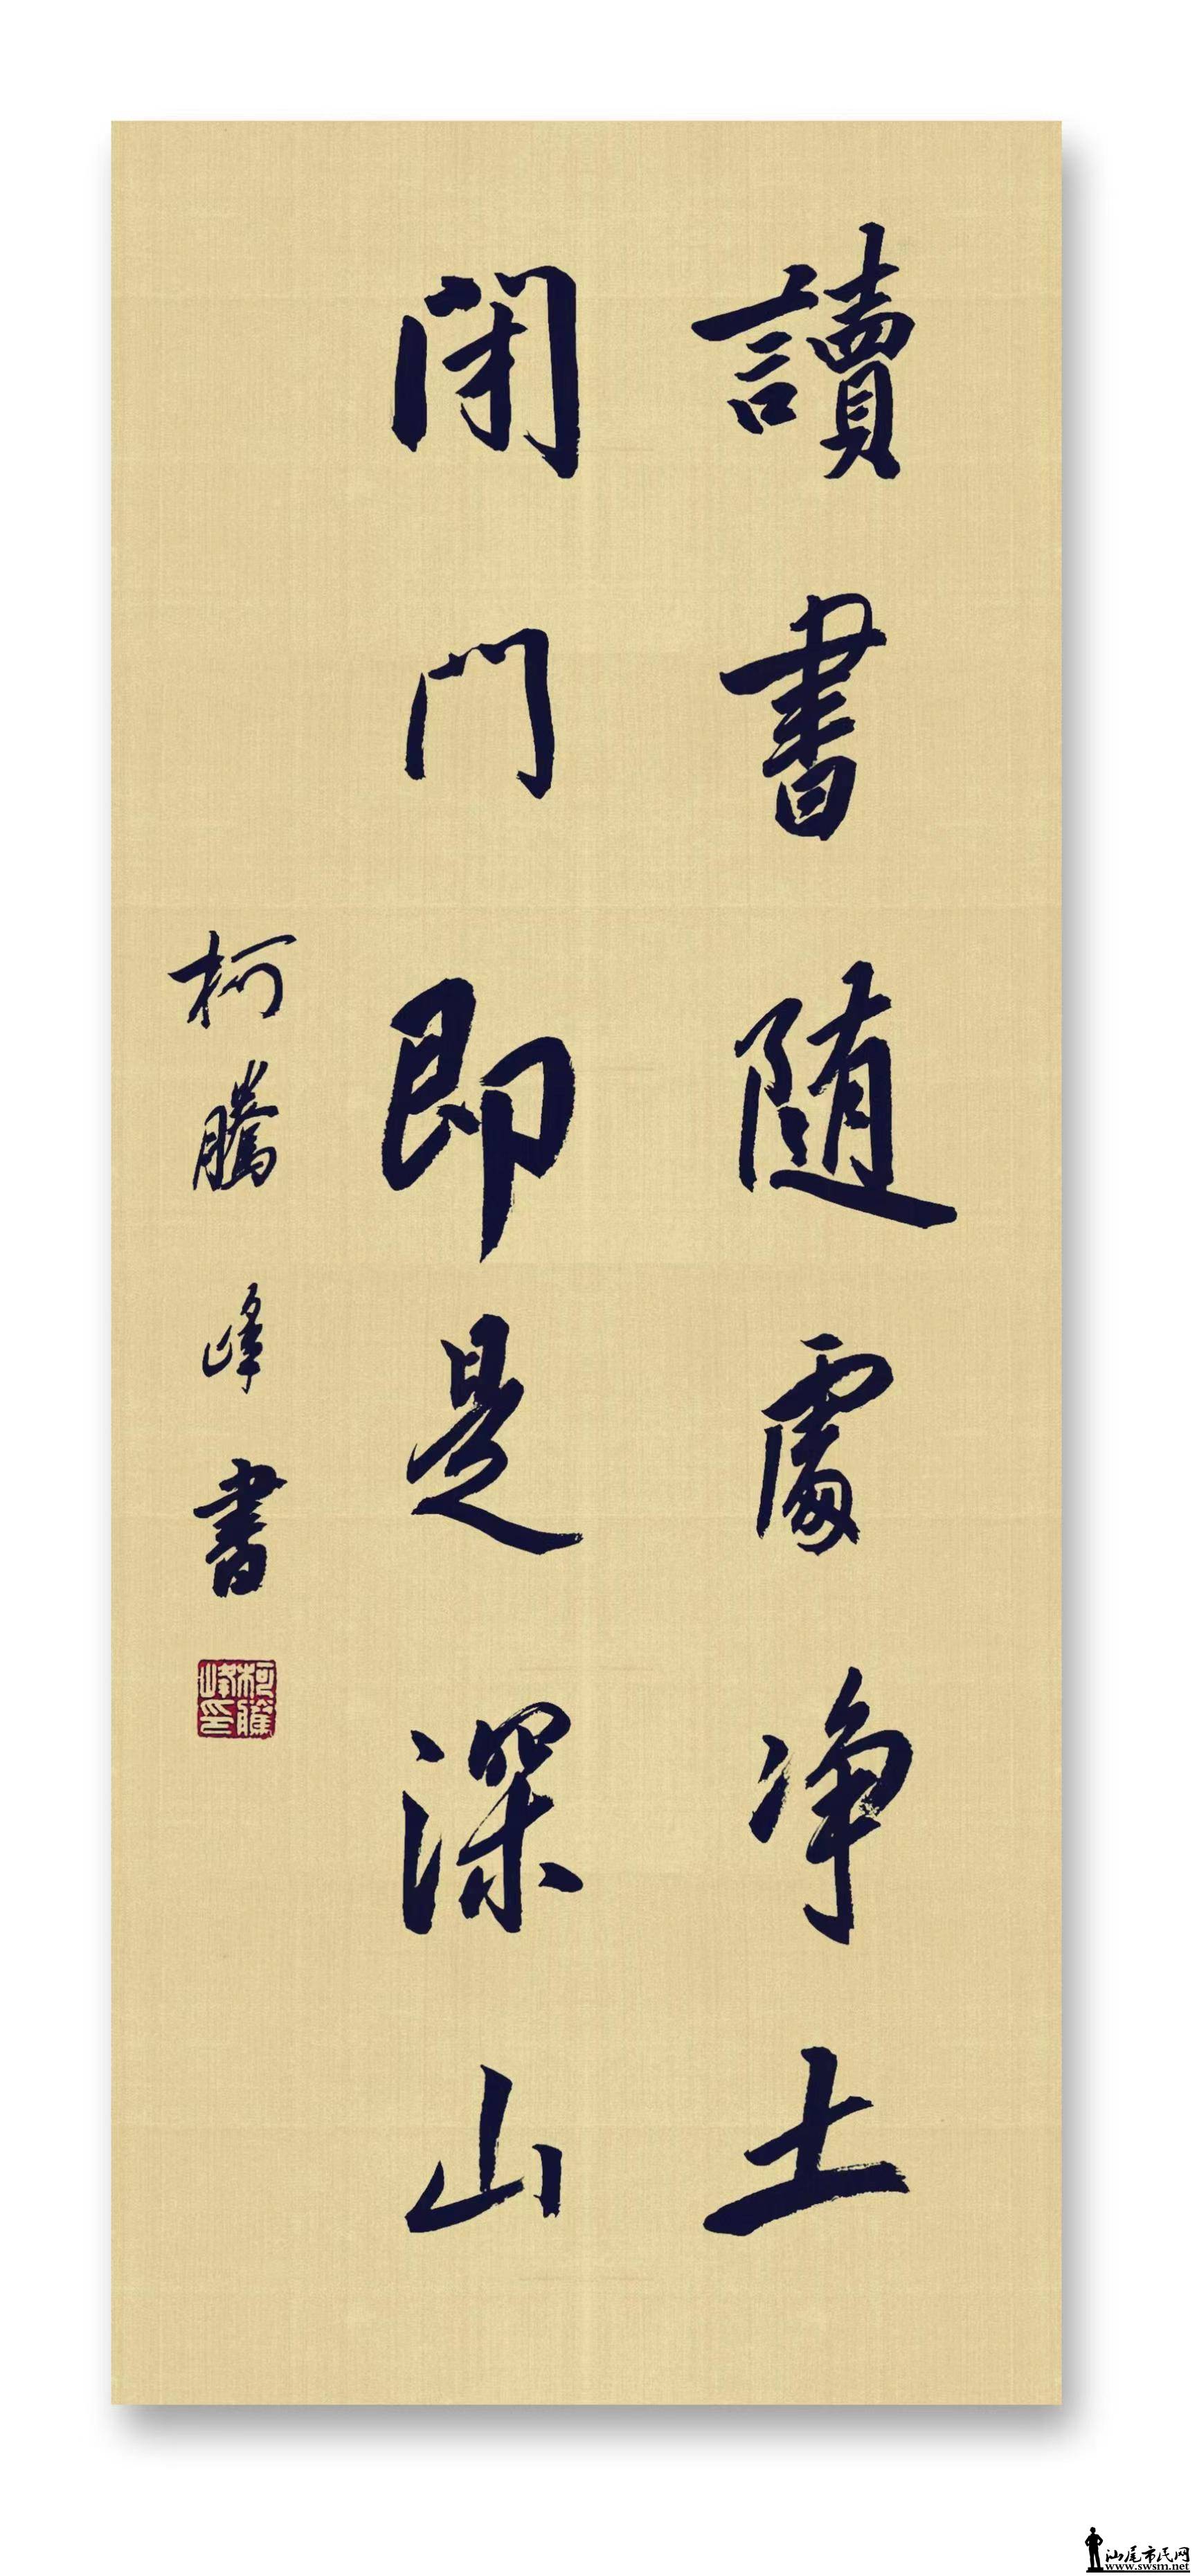 讀書随處净土
閉門即是深山
柯騰峰書
柯騰峰印
汕尾市民网
www.swsm.net